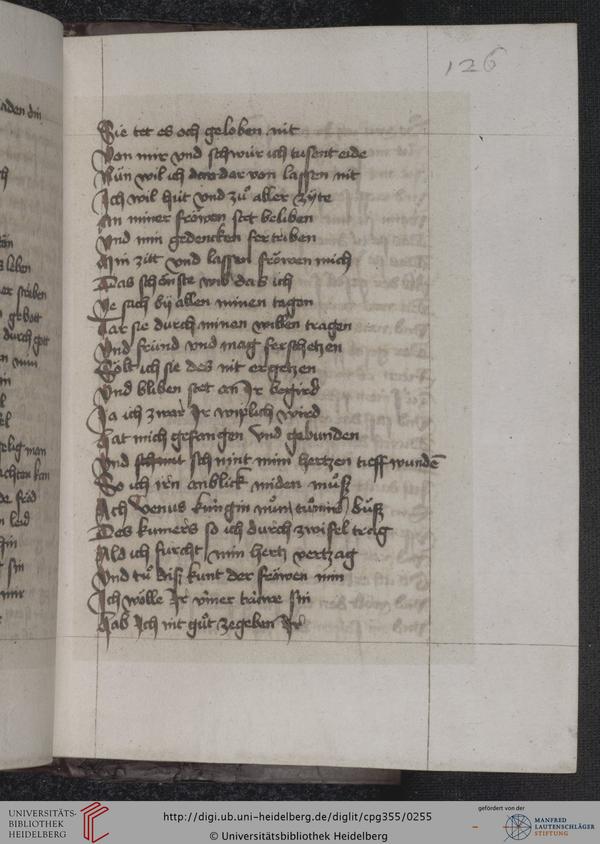 126
Sie tet es och geloben nit
Von mir vnd schwür ich tusent eide
Nün wil ich daro dar von lassen nit
Ich wil hüt vnd zů aller zÿte
An miner fröwen stet beliben
Vnd min gedencken fertriben
Min zitt vnd lassen fröwen mich
Das schönste wib das ich
Ye sach bÿ allen minen tagen
Tar sie durch minen willen tragen
Vnd fründ vnd mag ferschetzen
Sölt ich sie des nit ergetzen
Vnd bliben stet an Ir begird
Ja ich zwar Ir wiplich wird
Hat mich gefangen vnd gebunden
Vnd schnint mim hertzen tieff wundē
So ich irn anblick miden můß
Ach venus küngin bůß
Des kumers so ich durch zwifel trag
Ald ich fürcht min hertz vertzag
Vnd tů disß kunt der fröwen min
Ich wölle Ir vmer trüwe sin
Hab Ich nit gůt zegeben Ir
UNIVERSITÄTS-
BIBLIOTHEK
HEIDELBERG
http://digi.ub.uni-heidelberg.de/diglit/cpg355/0255
© Universitätsbibliothek Heidelberg
gefördert von der
MANFRED
LAUTENSCHLÄGER
STIFTUNG